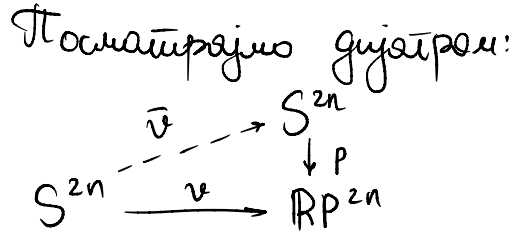 Посматрајмо дијаграм:
v̄ S²ⁿ
p
S²ⁿ v ℝP²ⁿ